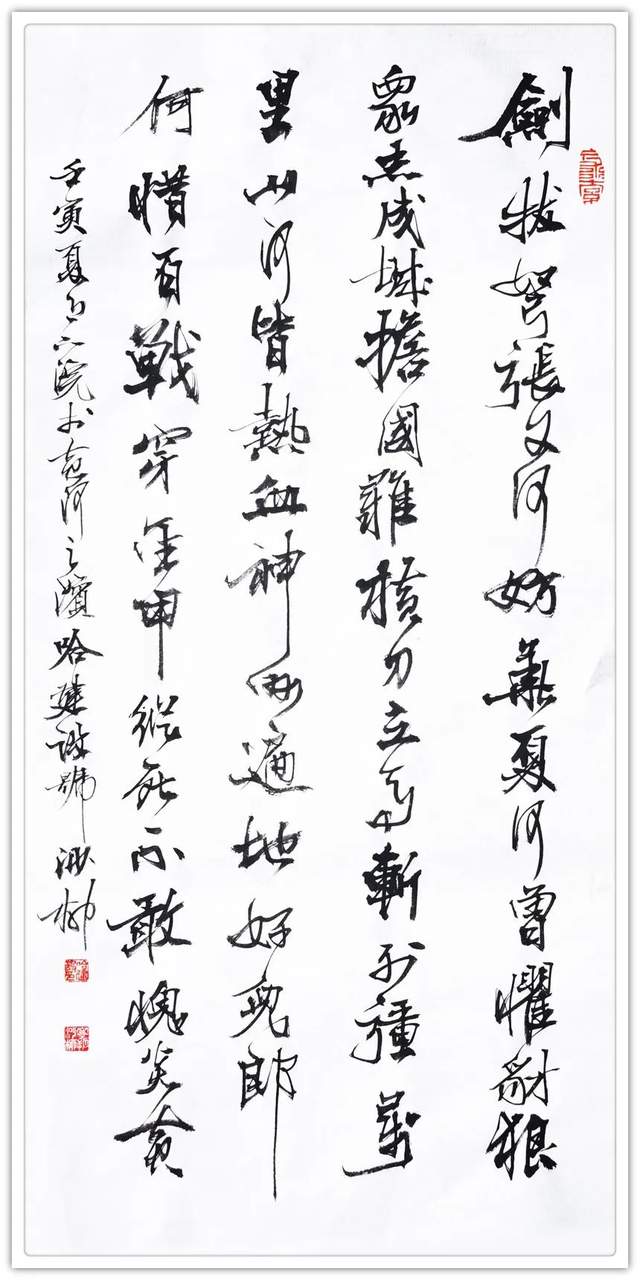 劍拔弩張又何妨華夏何曾懼豺狼
眾志成城擔國難橫刀立馬斬列彊萬
里山河皆熱血神州遍地好兒郎
何惜百戰穿金甲縱死不敢愧炎黃
壬寅夏月书河之濱哈建號